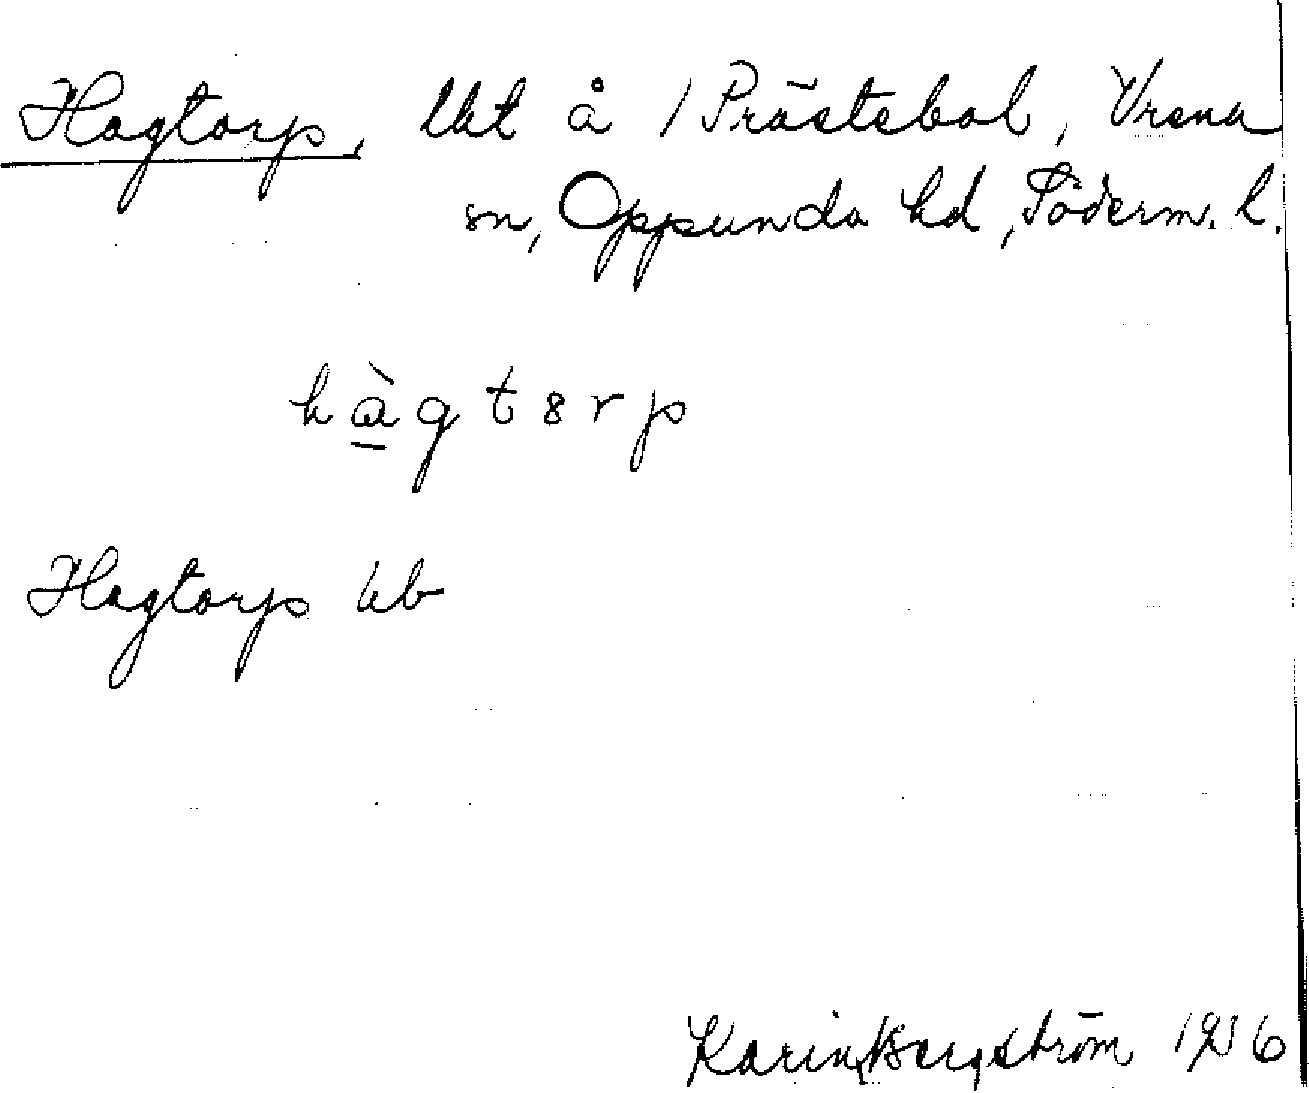 Hagtorp, lht å 1 Prästebol, Vrena
sn, Oppunda hd, Söderm. l.
hàgtorp
Hagtorp kb
Karin Bergström 1936